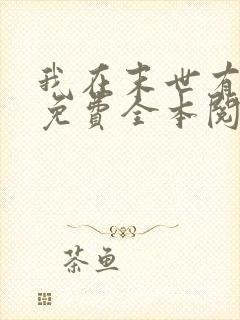 我在末世有
免费全本阅
茶鱼